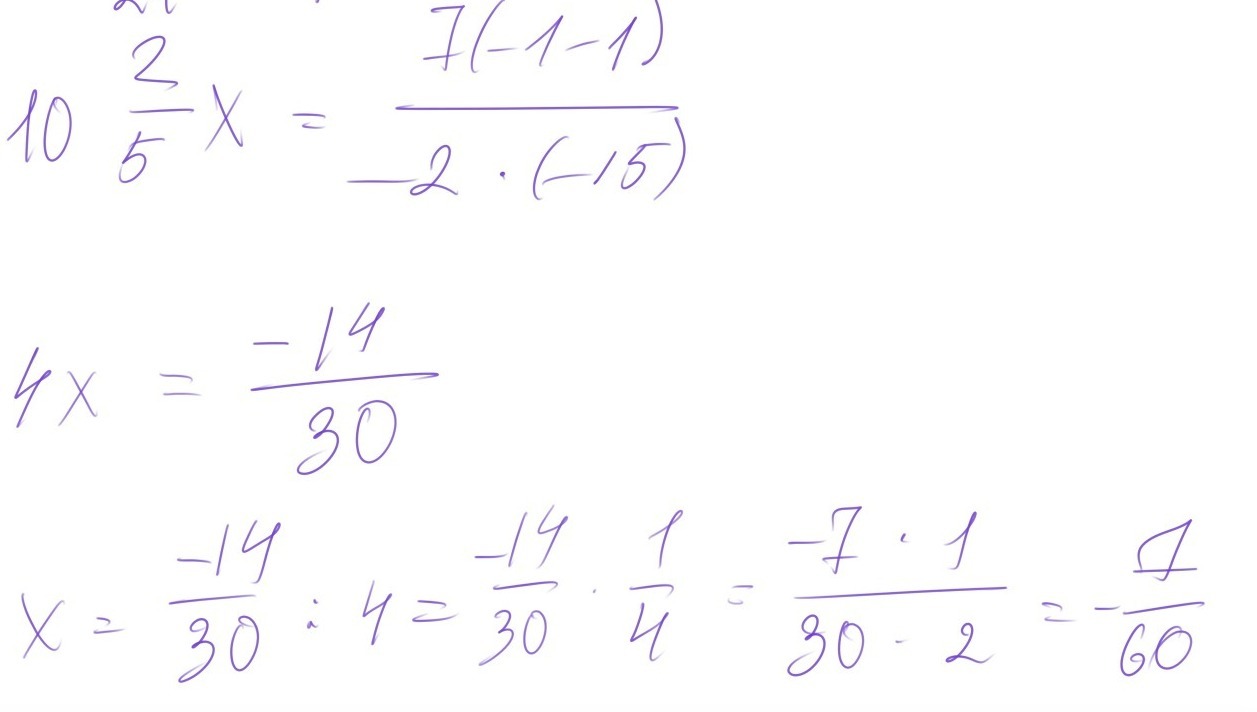 10 2/5 x = 7(-1-1) / -2 · (-15)
4x = -14/30
x = -14/30 : 4 = -14/30 · 1/4 = -7 · 1 / 30 · 2 = -7/60